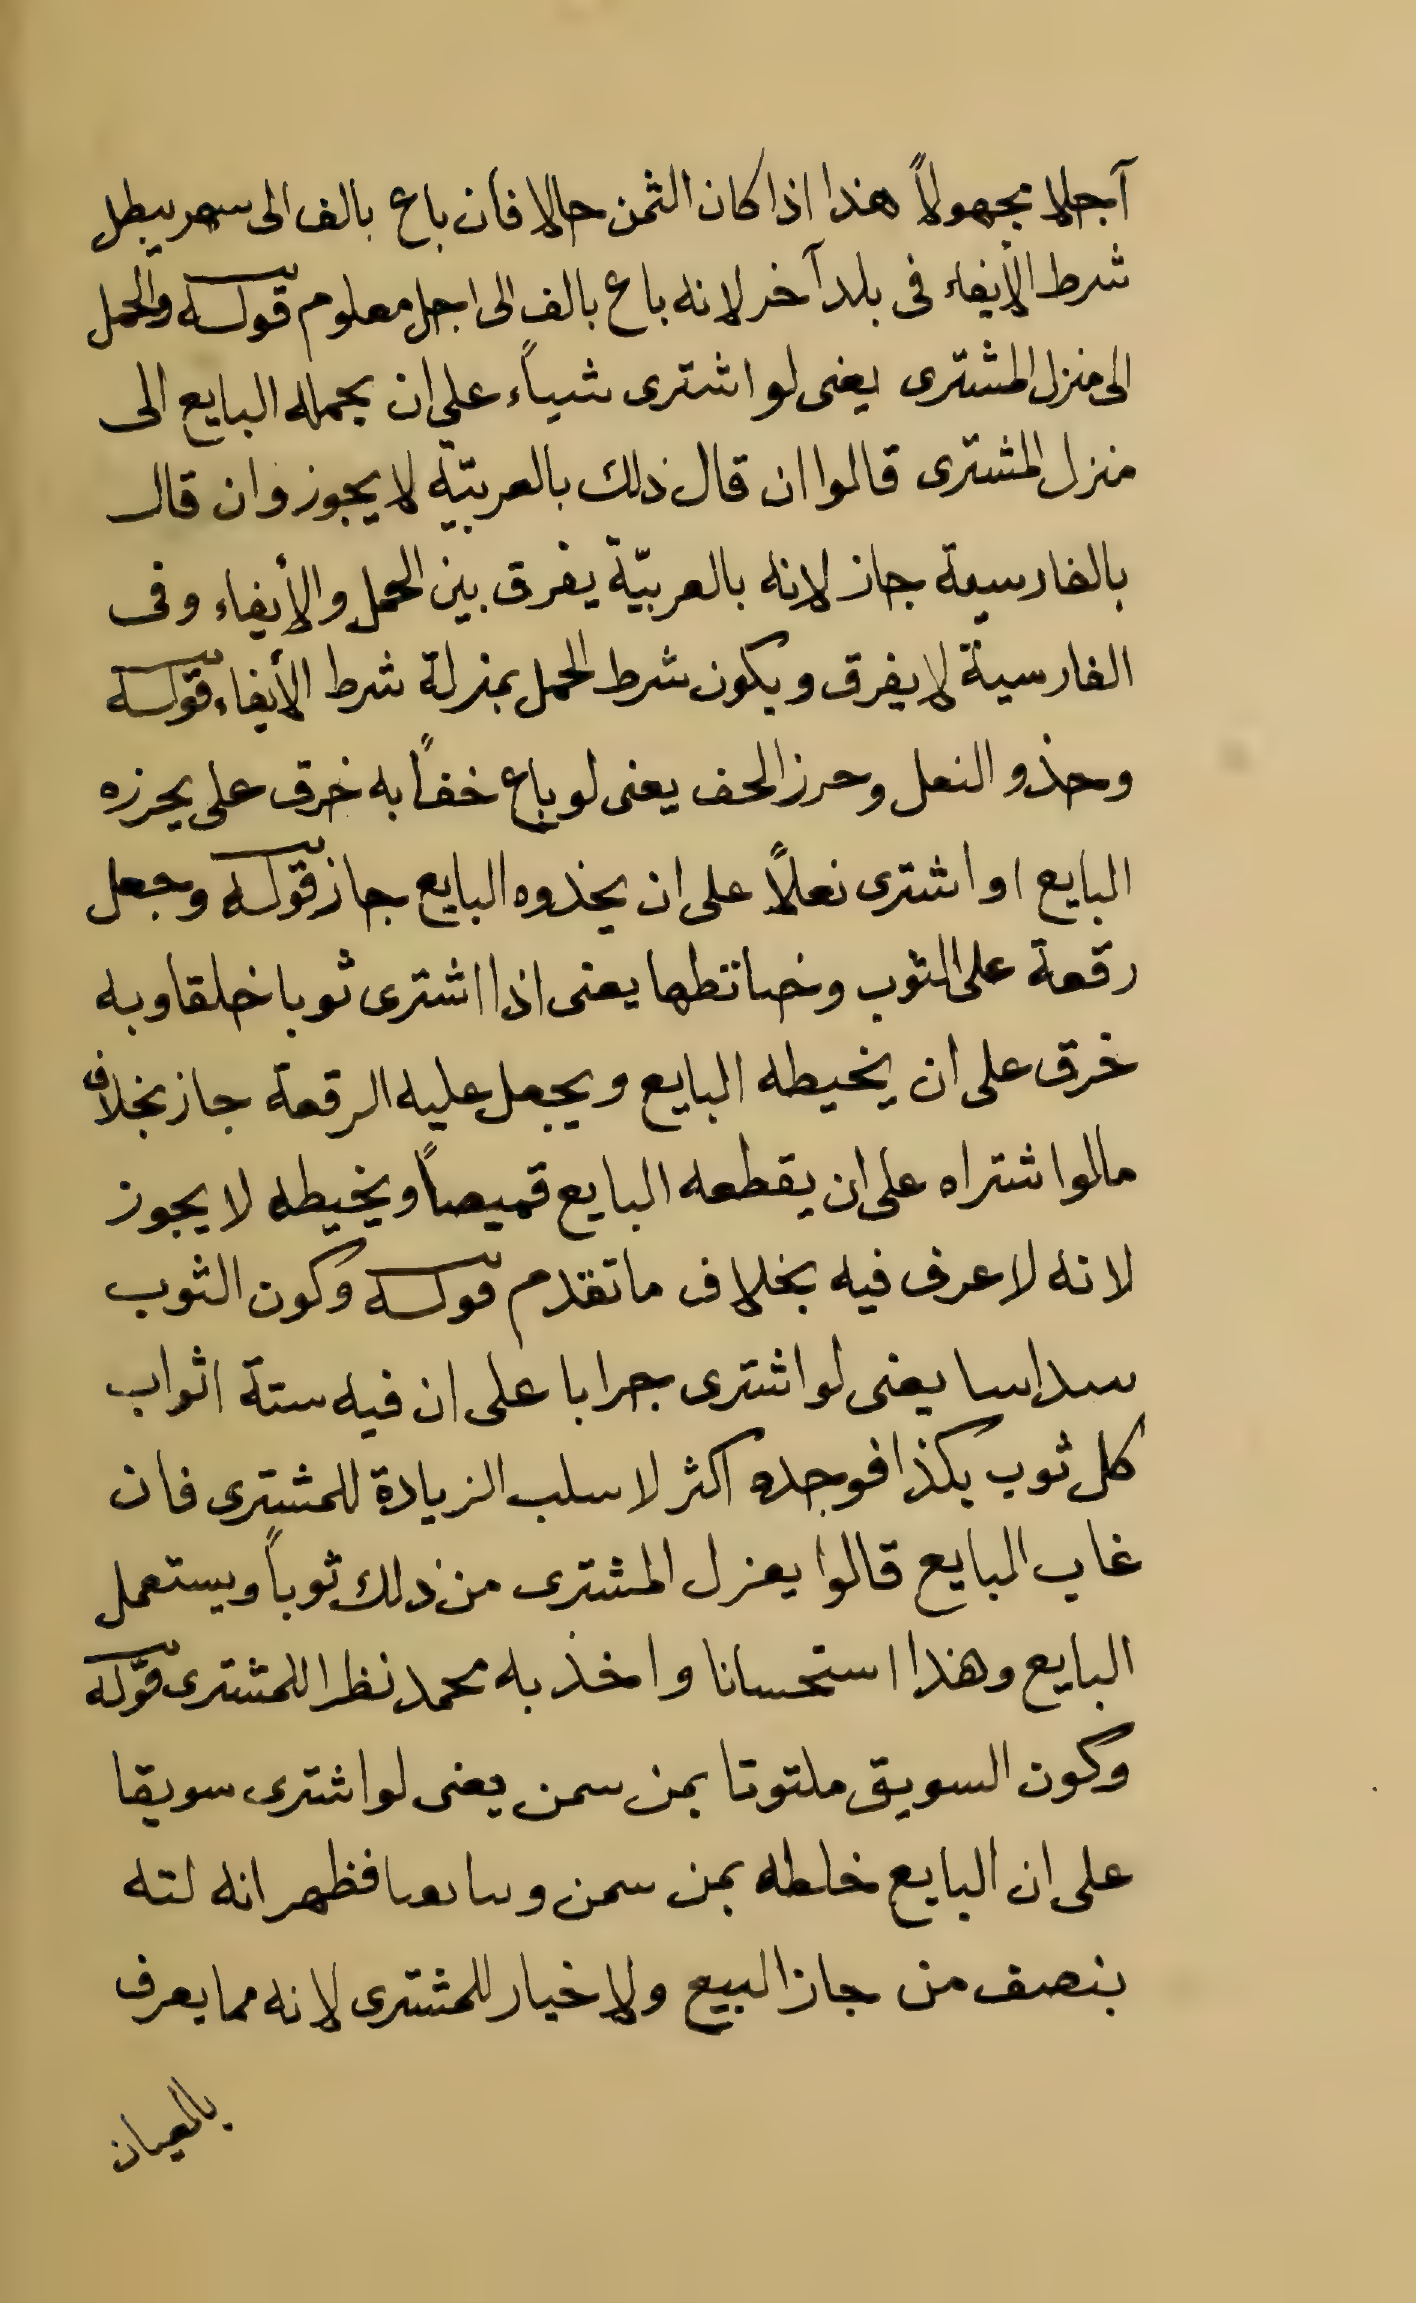 آجلا مجهولاً هذا اذا كان الثمن حالا فان باع بالف الى سهر يبطل
شرط الأيفاء فى بلد آخر لانه باع بالف الى اجل معلوم قوله والحمل
الى منزل المشترى يعنى لو اشترى شياًء على ان يحمله البايع الى
منزل المشترى قالوا ان قال ذلك بالعربيّة لا يجوز وان قال
بالفارسية جاز لانه بالعربيّة يفرق بين الحمل والأيفاء وفى
الفارسية لا يفرق ويكون شرط الحمل بمنزلة شرط الأيفاء قوله
وحذو النعل وحرز الحف يعنى لو باع خفاً به خرق على يحرزه
البايع او اشترى نعلاً على ان يخذوه البايع جاز قوله وجعل
رقعة على الثوب يعنى اذا اشترى ثوبا خلقا وبه
خرق على ان يخيطه البايع ويجعل عليه الرقعة جاز بخلاف
مالو اشتراه على ان يقطعه البايع قميصاً ويخيطه لا يجوز
لانه لا عرف فيه بخلاف ما تقدم قوله وكون الثوب
سداسا يعنى لو اشترى جرابا على ان فيه ستة اثواب
كل ثوب بكذا فوجده اكثر لا سلب الزيادة للمشترى فان
غاب البايع قالوا يعزل المشترى من ذلك ثوباً ويستعمل
البايع وهذا استحسانا واخذ به محمد نظرا للمشترى قوله
وكون السويق ملتوتا بمن سمن يعنى لو اشترى سويقا
على ان البايع خلطه بمن سمن فظهر انه لته
بنصف من جاز البيع ولا خيار للمشترى لانه مما يعرف
بالعيان